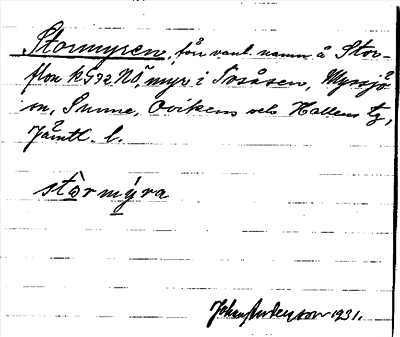 Stormyren, för vanl. namn å Stor-
flon k 572 NÖ, myr i Tråsen, Myssjö
sn, Sunne, Ovikens och Hallens tg,
Jämtl. l.
stòrmýra
Johan Anderson 1931.